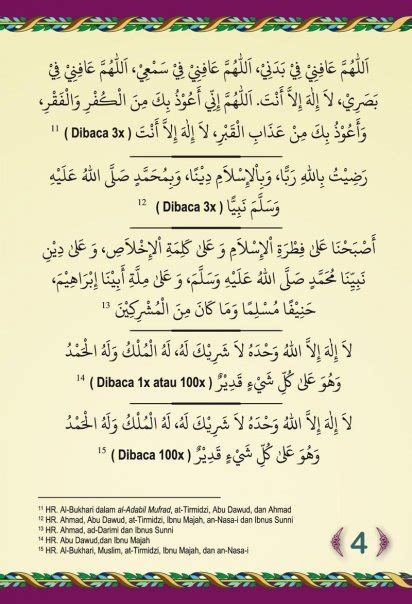 اَللّٰهُمَّ عَافِنِيْ فِيْ بَدَنِيْ، اَللّٰهُمَّ عَافِنِيْ فِيْ سَمْعِيْ، اَللّٰهُمَّ عَافِنِيْ فِيْ
بَصَرِيْ، لَا إِلٰهَ إِلَّا أَنْتَ. اَللّٰهُمَّ إِنِّي أَعُوْذُ بِكَ مِنَ الْكُفْرِ وَالْفَقْرِ،
وَأَعُوْذُ بِكَ مِنْ عَذَابِ الْقَبْرِ، لَا إِلٰهَ إِلَّا أَنْتَ ( Dibaca 3x ) 11
رَضِيْتُ بِاللهِ رَبًّا، وَبِالْإِسْلَامِ دِيْنًا، وَبِمُحَمَّدٍ صَلَّى اللهُ عَلَيْهِ
وَسَلَّمَ نَبِيًّا ( Dibaca 3x ) 12
أَصْبَحْنَا عَلَى فِطْرَةِ الْإِسْلَامِ وَ عَلَى كَلِمَةِ الْإِخْلَاصِ، وَ عَلَى دِيْنِ
نَبِيِّنَا مُحَمَّدٍ صَلَّى اللهُ عَلَيْهِ وَسَلَّمَ، وَ عَلَى مِلَّةِ أَبِيْنَا إِبْرَاهِيْمَ،
حَنِيْفًا مُسْلِمًا وَمَا كَانَ مِنَ الْمُشْرِكِيْنَ 13
لَا إِلٰهَ إِلَّا اللهُ وَحْدَهُ لَا شَرِيْكَ لَهُ، لَهُ الْمُلْكُ وَلَهُ الْحَمْدُ
وَهُوَ عَلَى كُلِّ شَيْءٍ قَدِيْرٌ ( Dibaca 1x atau 100x ) 14
لَا إِلٰهَ إِلَّا اللهُ وَحْدَهُ لَا شَرِيْكَ لَهُ، لَهُ الْمُلْكُ وَلَهُ الْحَمْدُ
وَهُوَ عَلَى كُلِّ شَيْءٍ قَدِيْرٌ ( Dibaca 100x ) 15
11 HR. Al-Bukhari dalam al-Adabil Mufrad, at-Tirmidzi, Abu Dawud, dan Ahmad
12 HR. Ahmad, Abu Dawud, at-Tirmidzi, Ibnu Majah, an-Nasa-i dan Ibnus Sunni
13 HR. Ahmad, ad-Darimi dan Ibnus Sunni
14 HR. Abu Dawud,dan Ibnu Majah
15 HR. Al-Bukhari, Muslim, at-Tirmidzi, Ibnu Majah, dan an-Nasa-i
4